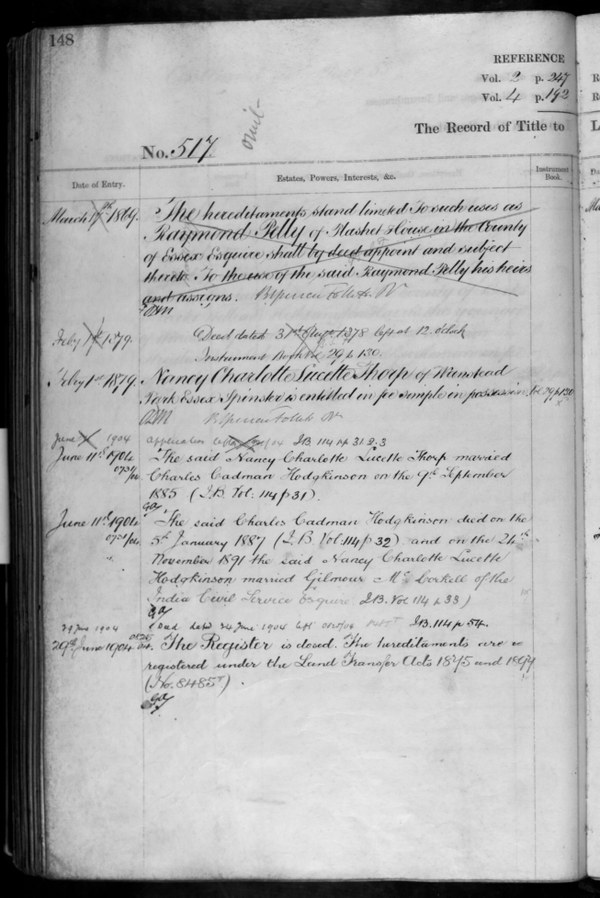 148
REFERENCE
Vol. 2 p. 247
Vol. 4 p. 192
The Record of Title to
No. 517
Date of Entry.
Estates, Powers, Interests, &c.
Instrument Book.
March 17th 1869.
The hereditaments stand limited To such uses as
Raymond Pelly of Plashet House in the County
of Essex Esquire shall by deed appoint and subject
thereto To the use of the said Raymond Pelly his heirs
and assigns.
Feby 1st 1879.
Deed dated 31st Augt 1878 left at 12 o'clock
Instrument Book Vol 29 p 130.
Feby 1st 1879.
Nancy Charlotte Lucette Thorp of Wanstead
Park Essex Spinster is entitled in fee simple in possession. Vol 29 p 130
June 1904
application I.B 114 p 31 2.3
June 11th 1904
The said Nancy Charlotte Lucette Thorp married
Charles Cadman Hodgkinson on the 9th September
1885 (I.B. Vol. 114 p 31).
June 11th 1904
The said Charles Cadman Hodgkinson died on the
5th January 1887 (I.B. Vol. 114 p 32) and on the 24th
November 1891 the said Nancy Charlotte Lucette
Hodgkinson married Gilmour McCorkell of the
India Civil Service Esquire I.B. Vol 114 p 33)
June 1904
Deed dated 24 June 1904 left I.B. 114 p 54.
29th June 1904
The Register is closed. The hereditaments are
registered under the Land Transfer Acts 1875 and 1897
(No. 8485)